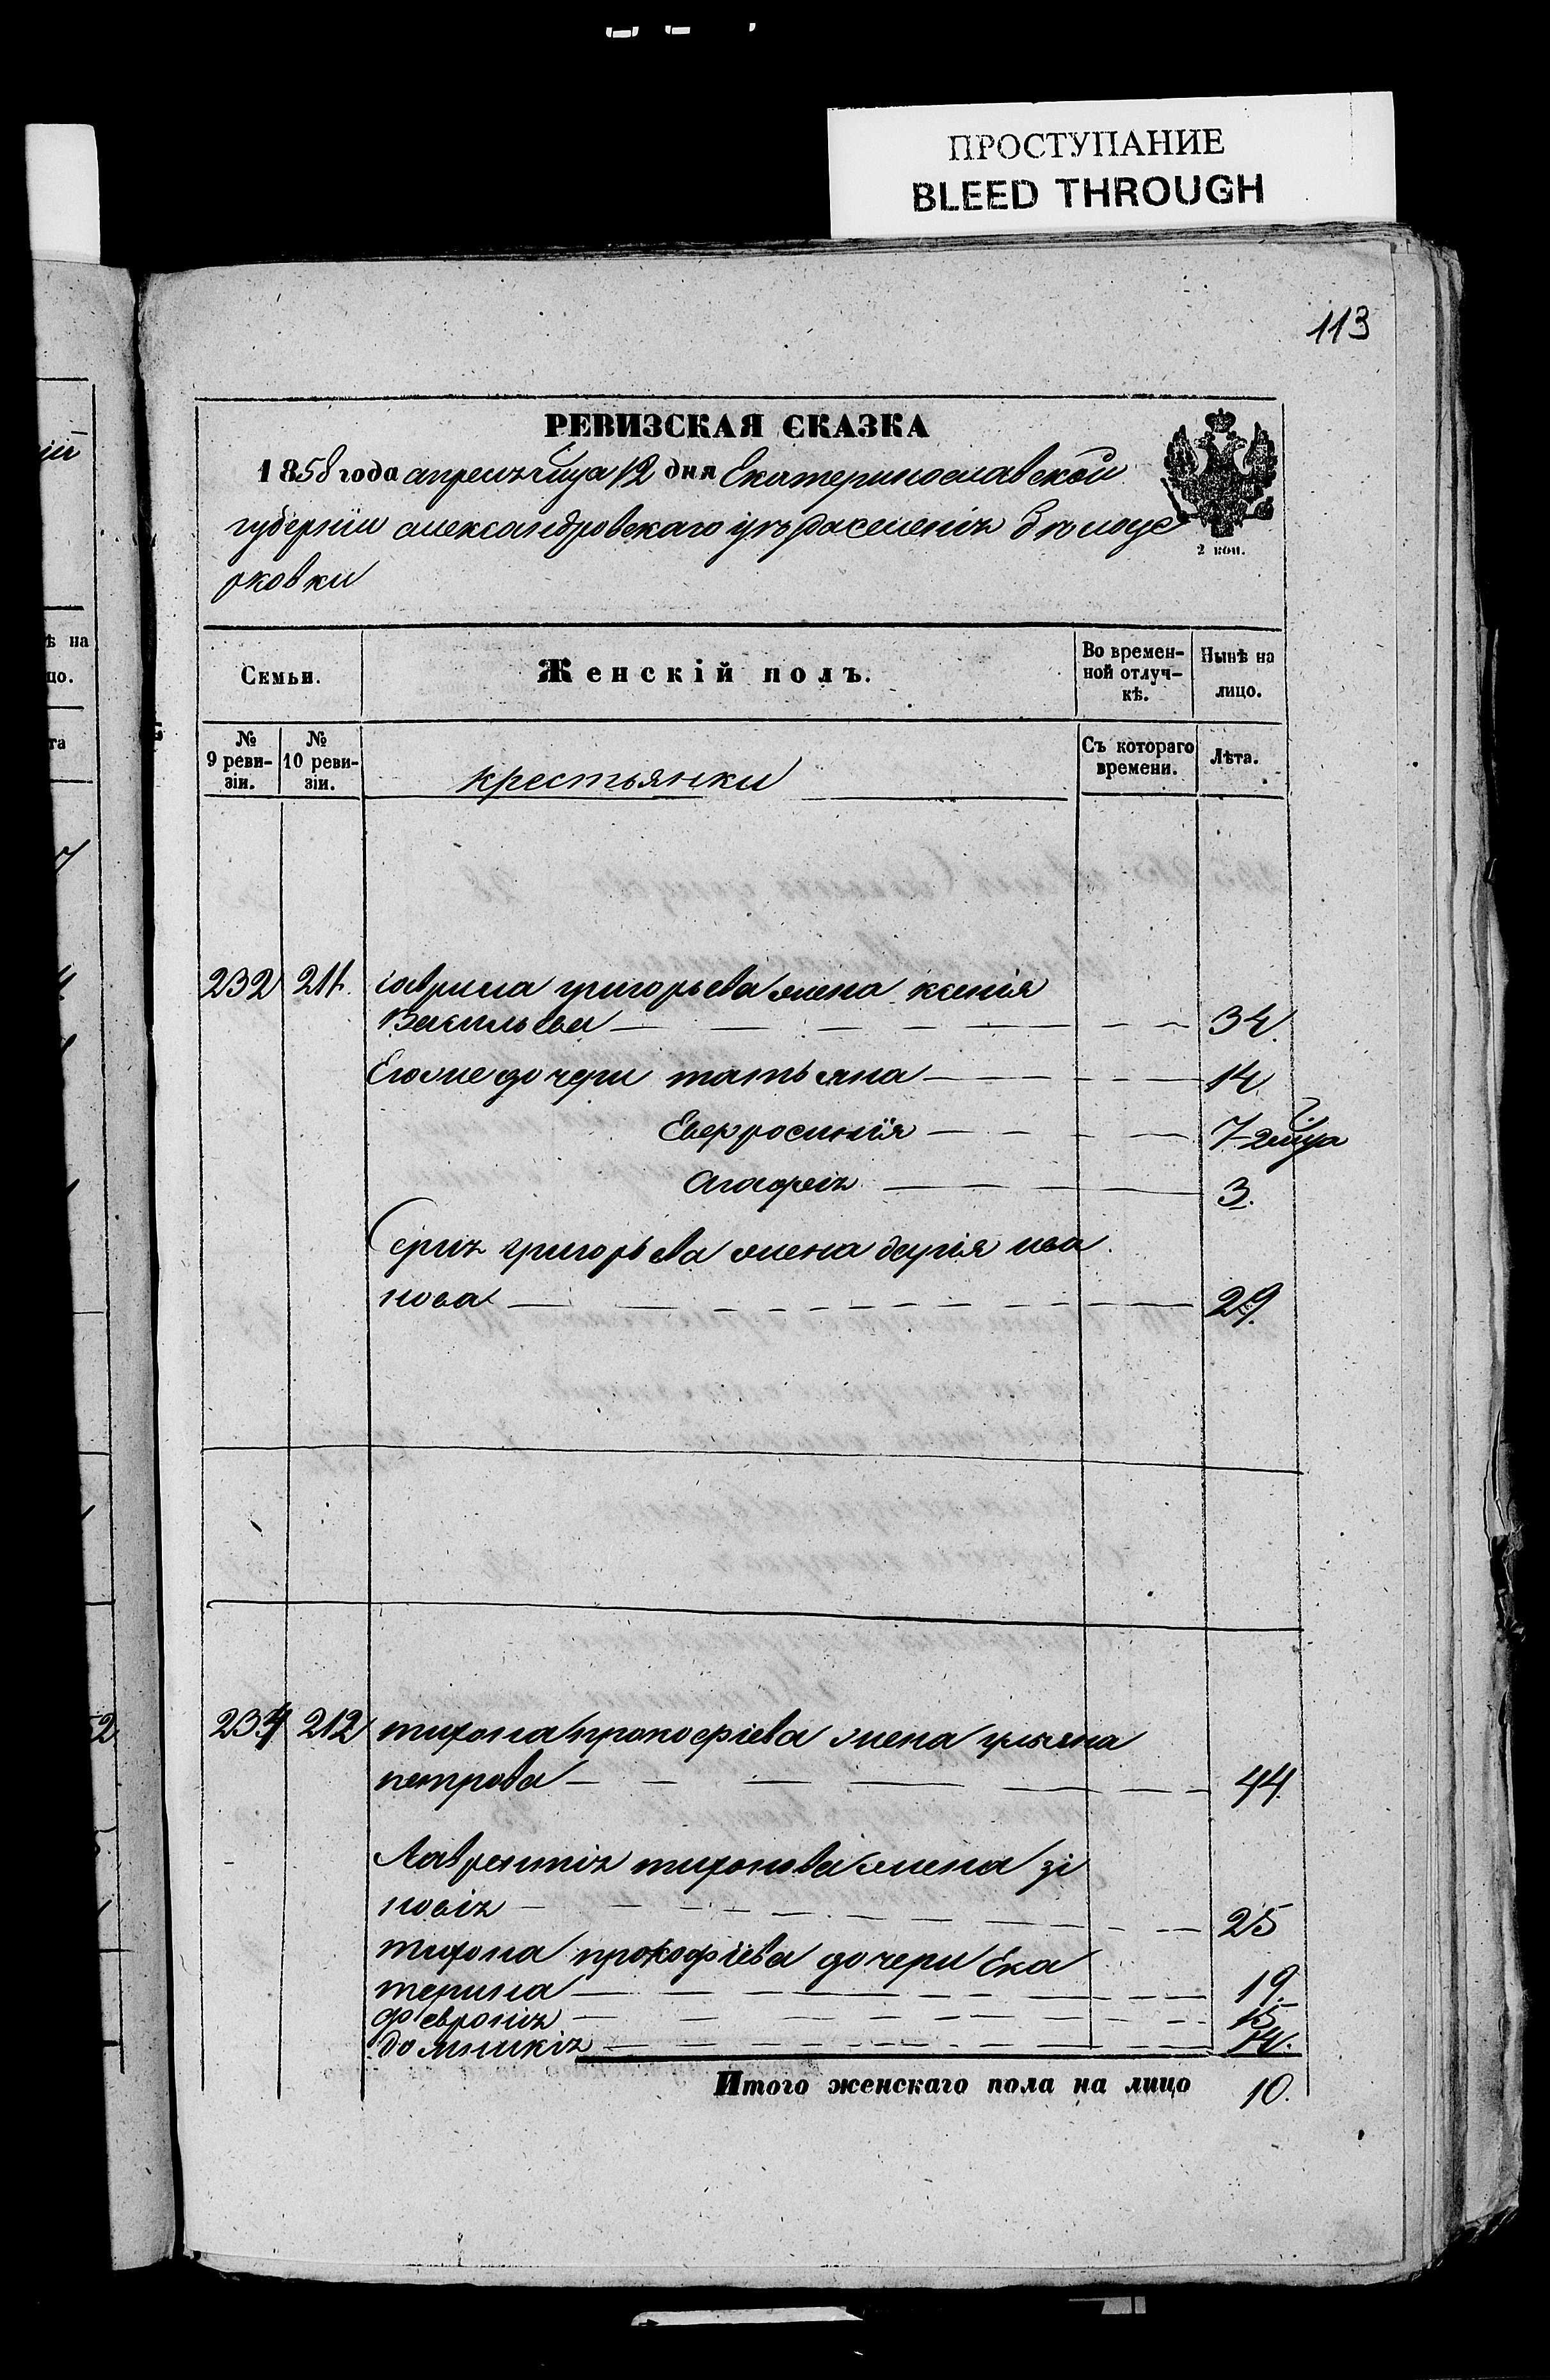 ПРОСТУПАНИЕ
BLEED THROUGH
113
РЕВИЗСКАЯ СКАЗКА
1858 года апреля мца 12 дня Екатеринославской
губерніи александровскаго
рковки
2 коп.
Семьи.
Женскій полъ.
Во времен-
ной отлуч-
кѣ.
Нынѣ на
лицо.
№
9 реви-
зіи.
№
10 реви-
зіи.
крестьянки
Съ котораго
времени.
Лѣта.
232 211. гаврила григорьева жена ксенія
Васильева 34.
Его же дочери татьяна 14
Евфросинія 7-2 мца
Агафія 3.
Сергія григорьева жена дарія ива
нова 29.
234 212 тихона прокофіева жена ульяна
петрова 44
Лаврентія тихонова жена зі
новія 25
тихона прокофіева дочери Ека
терина 19.
февронія 15
домникія 14.
Итого женскаго пола на лицо 10.